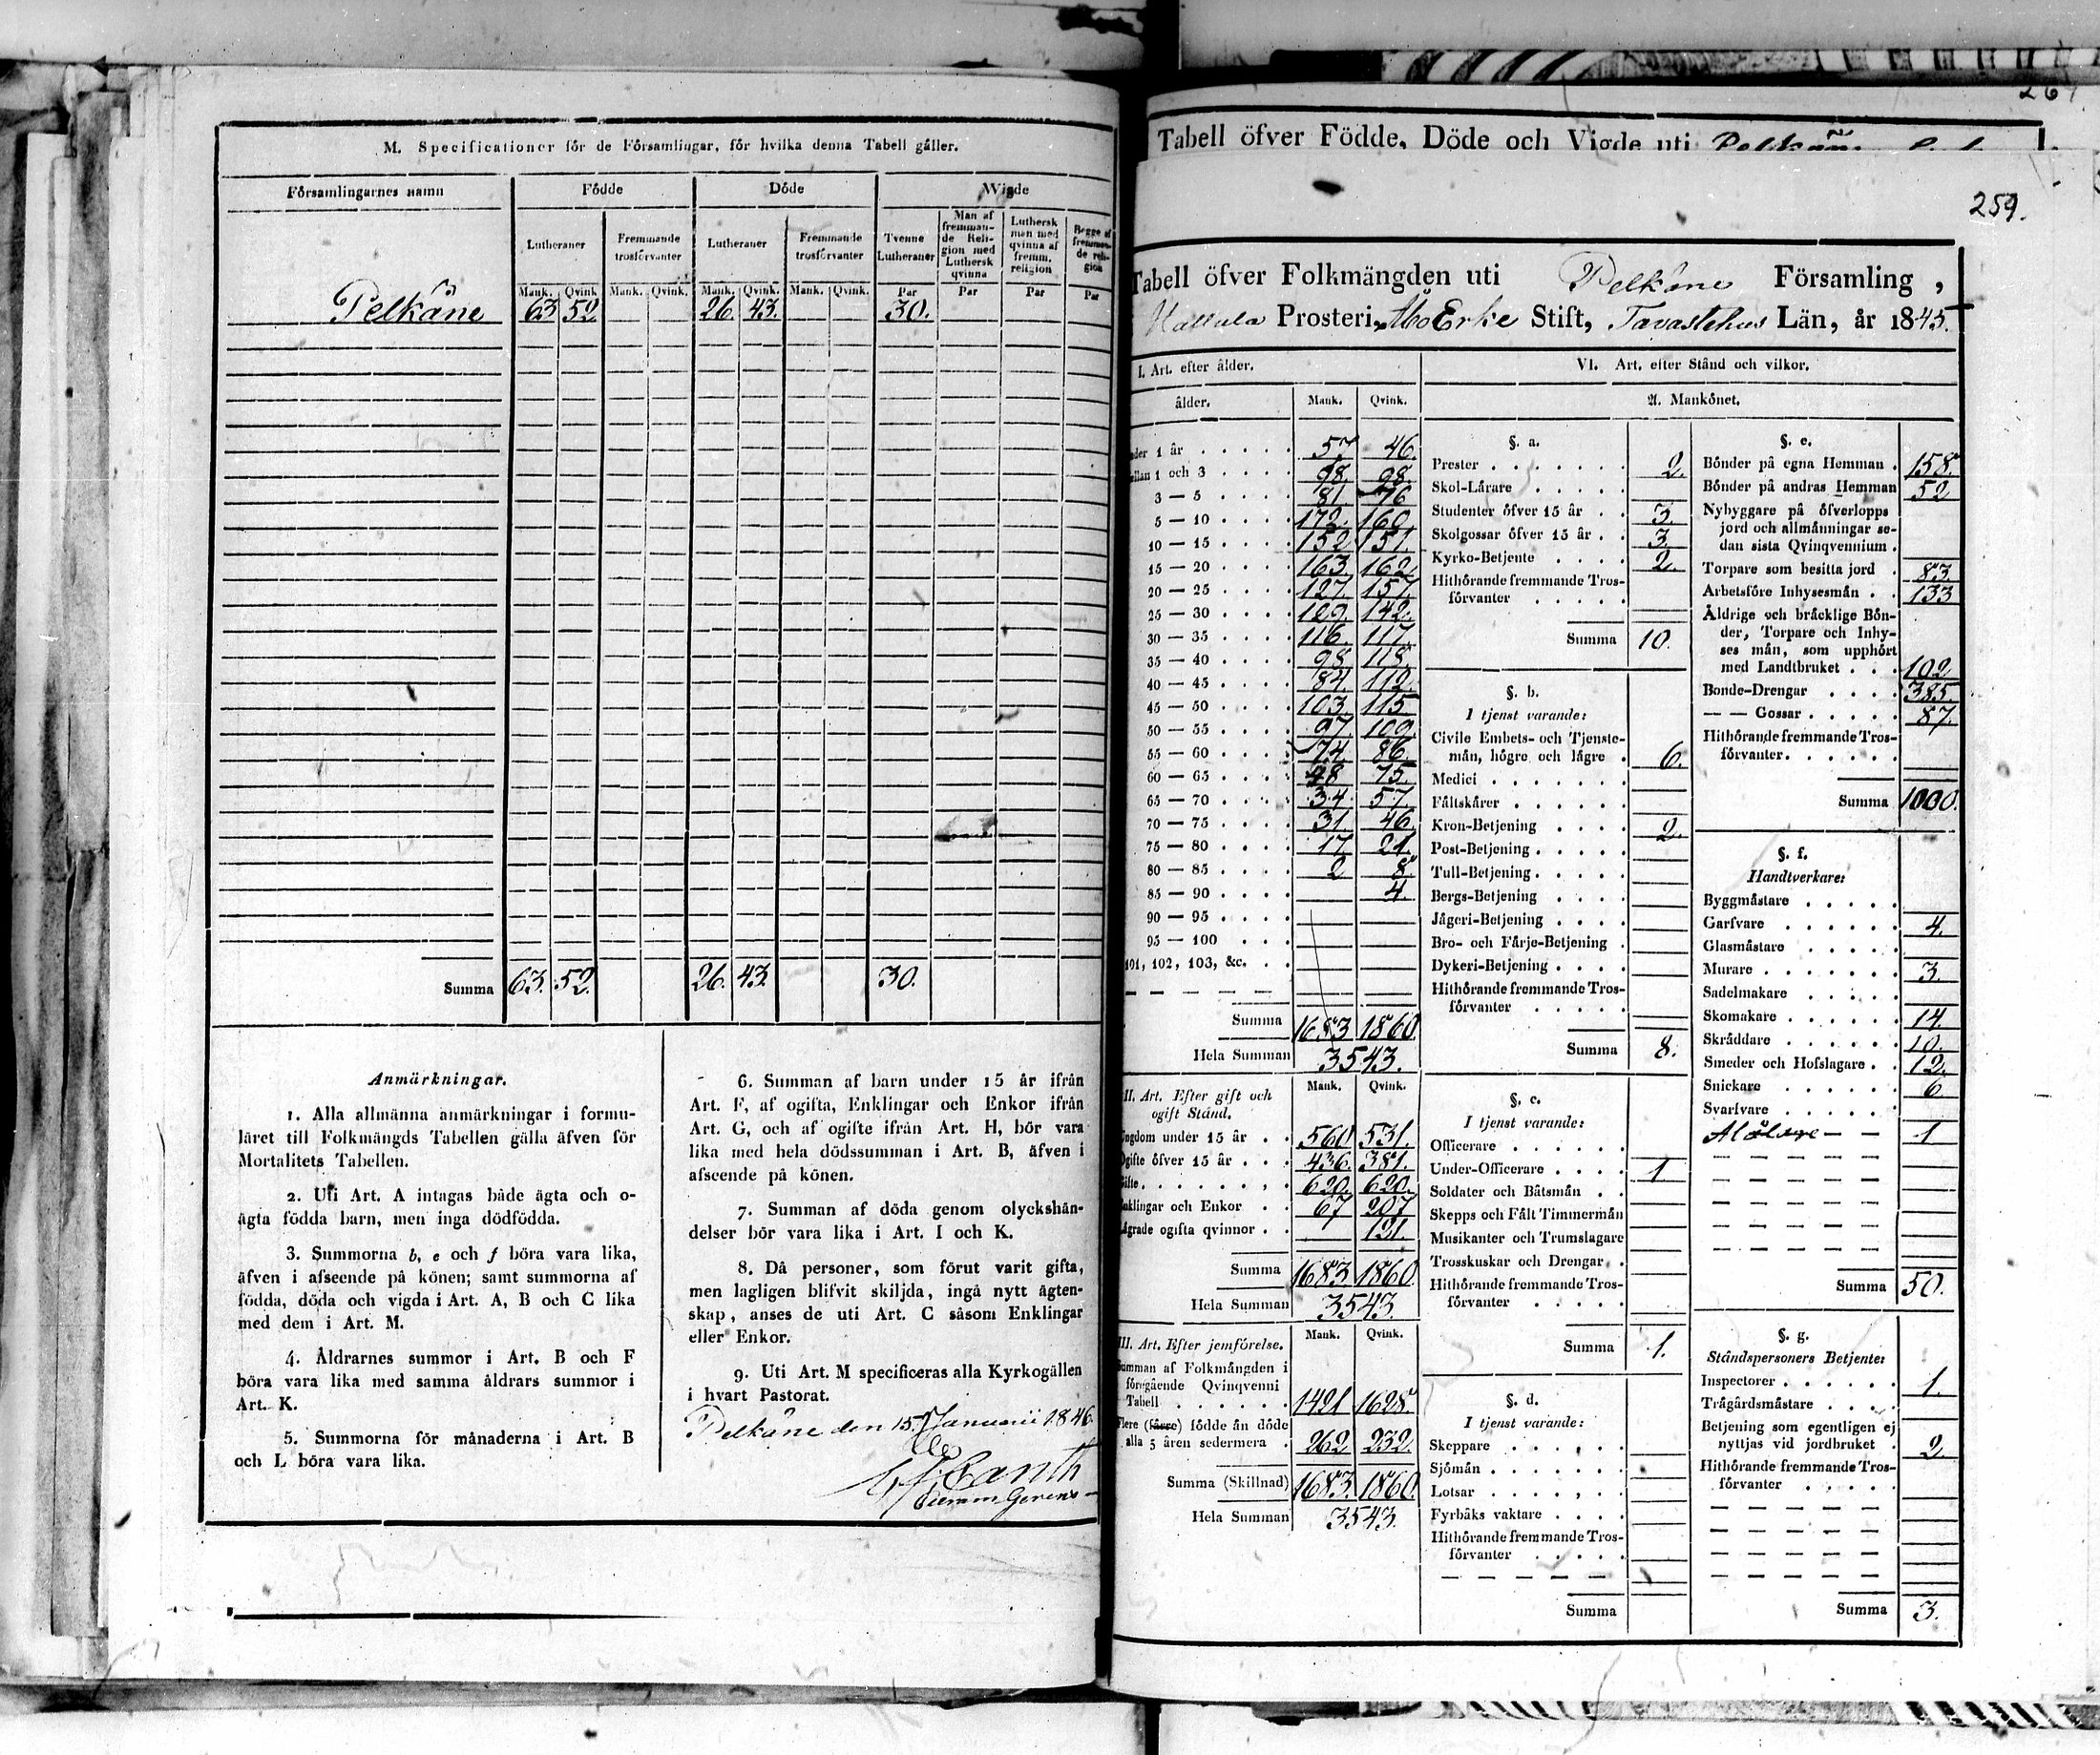 M. Specificationer för de Församlingar, för hvilka denna Tabell gäller.
Församlingarnes namn Födde Döde Wigde
Lutheraner Fremmande trosförvanter Lutheraner Fremmande trosförvanter Tvenne Lutheraner Man af fremmande Religion med Luthersk qvinna Luthersk man med qvinna af fremm. religion Begge af fremmande religion
Mank. Qvink Mank. Qvink. Mank. Qvink. Mank. Qvink. Par Par Par Par
Pelkäne 63 52 26. 43. 30.
Summa 63. 52. 26. 43. 30.
Anmärkningar.
1. Alla allmänna anmärkningar i formu-
läret till Folkmängds Tabellen gälla äfven för
Mortalitets Tabellen.
2. Uti Art. A intagas både ägta och o-
ägta födda barn, men inga dödfödda.
3. Summorna b, e och f böra vara lika,
äfven i afseende på könen; samt summorna af
födda, döda och vigda i Art. A, B och C lika
med dem i Art. M.
4. Åldrarnes summor i Art. B och F
böra vara lika med samma åldrars summor i
Art. K.
5. Summorna för månaderna i Art. B
och L böra vara lika.
6. Summan af barn under 15 år ifrån
Art. F, af ogifta, Enklingar och Enkor ifrån
Art. G, och af ogifte ifrån Art. H, bör vara
lika med hela dödssumman i Art. B, äfven i
afseende på könen.
7. Summan af döda genom olyckshän-
delser bör vara lika i Art. I och K.
8. Då personer, som förut varit gifta,
men lagligen blifvit skiljda, ingå nytt ägten-
skap, anses de uti Art. C såsom Enklingar
eller Enkor.
9. Uti Art. M specificeras alla Kyrkogällen
i hvart Pastorat.
Pelkäne den 15. Januarii 1846.
Tabell öfver Födde, Döde och Vigde uti Pelkäne
259.
Tabell öfver Folkmängden uti Pelkäne Församling,
Prosteri, Åbo Erke Stift, Tavastehus Län, år 1845.
I. Art. efter ålder.
ålder. Mank. Qvink.
under 1 år 57 46.
mellan 1 och 3 98. 98.
3 — 5 81. 76
5 — 10 172. 160.
10 — 15 152 151.
15 — 20 163. 162
20 — 25 127. 157.
25 — 30 129. 142.
30 — 35 116. 117.
35 — 40 98 118.
40 — 45 84. 112.
45 — 50 103. 115
50 — 55 97. 109.
55 — 60 74 86.
60 — 65 48 75.
65 — 70 34. 57.
70 — 75 31. 46.
75 — 80 17 21.
80 — 85 2 8.
85 — 90 4.
90 — 95
95 — 100
101, 102, 103, &c.
Summa 1683 1860
Hela Summan 3543.
II. Art. Efter gift och ogift Stånd. Mank. Qvink.
Ungdom under 15 år 560 531.
Ogifte öfver 15 år 436. 381.
Gifte 620. 620.
Enklingar och Enkor 67 207
Lägrade ogifta qvinnor 121.
Summa 1683 1860.
Hela Summan 3543.
III. Art. Efter jemförelse. Mank. Qvink.
Summan af Folkmängden i
föregående Qvinqvenni
Tabell 1421 1628
Flere (färre) födde än döde
alla 5 åren sedermera 262 232.
Summa (Skillnad) 1683. 1860.
Hela Summan 3543.
VI. Art. efter Stånd och vilkor.
A. Mankönet.
§. a.
Prester 2.
Skol-Lärare
Studenter öfver 15 år 3.
Skolgossar öfver 15 år 3.
Kyrko-Betjente 2.
Hithörande fremmande Tros-
förvanter
Summa 10.
§. b.
I tjenst varande:
Civile Embets- och Tjenste-
män, högre och lägre 6.
Medici
Fältskärer
Kron-Betjening 2.
Post-Betjening
Tull-Betjening
Bergs-Betjening
Jägeri-Betjening
Bro- och Färje-Betjening
Dykeri-Betjening
Hithörande fremmande Tros-
förvanter
Summa 8.
§. c.
I tjenst varande:
Officerare
Under-Officerare 1
Soldater och Båtsmän
Skepps och Fält Timmermän
Musikanter och Trumslagare
Trosskuskar och Drengar
Hithörande fremmande Tros-
förvanter
Summa 1.
§. d.
I tjenst varande:
Skeppare
Sjömän
Lotsar
Fyrbåks vaktare
Hithörande fremmande Tros-
förvanter
Summa
§. e.
Bönder på egna Hemman 158.
Bönder på andras Hemman 52
Nybyggare på öfverlopps
jord och allmänningar se-
dan sista Qvinqvennium
Torpare som besitta jord 83.
Arbetsföre Inhysesmän 133
Äldrige och bräcklige Bön-
der, Torpare och Inhy-
ses män, som upphört
med Landtbruket 102
Bonde-Drengar 385.
— — Gossar 87.
Hithörande fremmande Tros-
förvanter
Summa 1000.
§. f.
Handtverkare:
Byggmästare
Garfvare 4.
Glasmästare
Murare 3.
Sadelmakare
Skomakare 14.
Skräddare 10.
Smeder och Hofslagare 12.
Snickare 6
Svarfvare
Målare 1
Summa 50.
§. g.
Ståndspersoners Betjente:
Inspectorer 1.
Trägårdsmästare
Betjening som egentligen ej
nyttjas vid jordbruket 2.
Hithörande fremmande Tros-
förvanter
Summa 3.